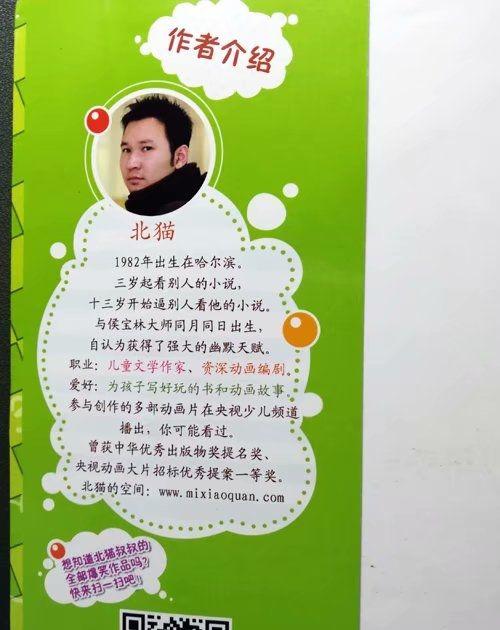 作者介绍
北猫
1982年出生在哈尔滨。
三岁起看别人的小说,
十三岁开始逼别人看他的小说。
与侯宝林大师同月同日出生,
自认为获得了强大的幽默天赋。
职业:儿童文学作家、资深动画编剧。
爱好:为孩子写好玩的书和动画故事。
参与创作的多部动画片在央视少儿频道
播出,你可能看过。
曾获中华优秀出版物奖提名奖、
央视动画大片招标优秀提案一等奖。
北猫的空间:www.mixiaoquan.com
想知道北猫叔叔的
全部爆笑作品吗?
快来扫一扫吧!